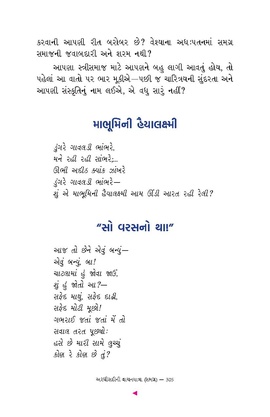 કરવાની આપણી રીત બરોબર છે? વેશ્યાના અધઃપતનમાં સમગ્ર
સમાજની જવાબદારી અને શરમ નથી?
આપણા સ્ત્રીસમાજ માટે આપણને બહુ લાગી આવતું હોય, તો
પહેલાં આ વાતો પર ભાર મૂકીએ—પછી જ ચારિત્ર્યની સુંદરતા અને
આપણી સંસ્કૃતિનું નામ લઈએ, એ વધુ સારું નહીં?
માભૂમિની હૈયાલક્ષ્મી
ડુંગરે ગાવલડી ભાંભરે,
મને રહી રહી સાંભરે;..
ઊભી અદીઠ ક્યાંક ઝાંખરે
ડુંગરે ગાવલડી ભાંભરે—
શું એ માભૂમિની હૈયાલક્ષ્મી આમ ઊંડી આરત રહી રેલી?
“સો વરસનો થા!”
આજ તો છેને એવું બન્યું—
એવું બન્યું, બા!
ચાટલામાં હું જોવા જાઉં,
શું હું જોતો આ?—
સફેદ માથું, સફેદ દાઢી,
સફેદ મોટી મૂછો!
ગભરાઈ જતાં જતાં મેં તો
સવાલ તરત પૂછ્યો:
હસે છે મારી સામે લુચ્ચું
કોણ રે કોણ છે તું?
અરધીસદીની વાચનયાત્રા (સમગ્ર) — 325